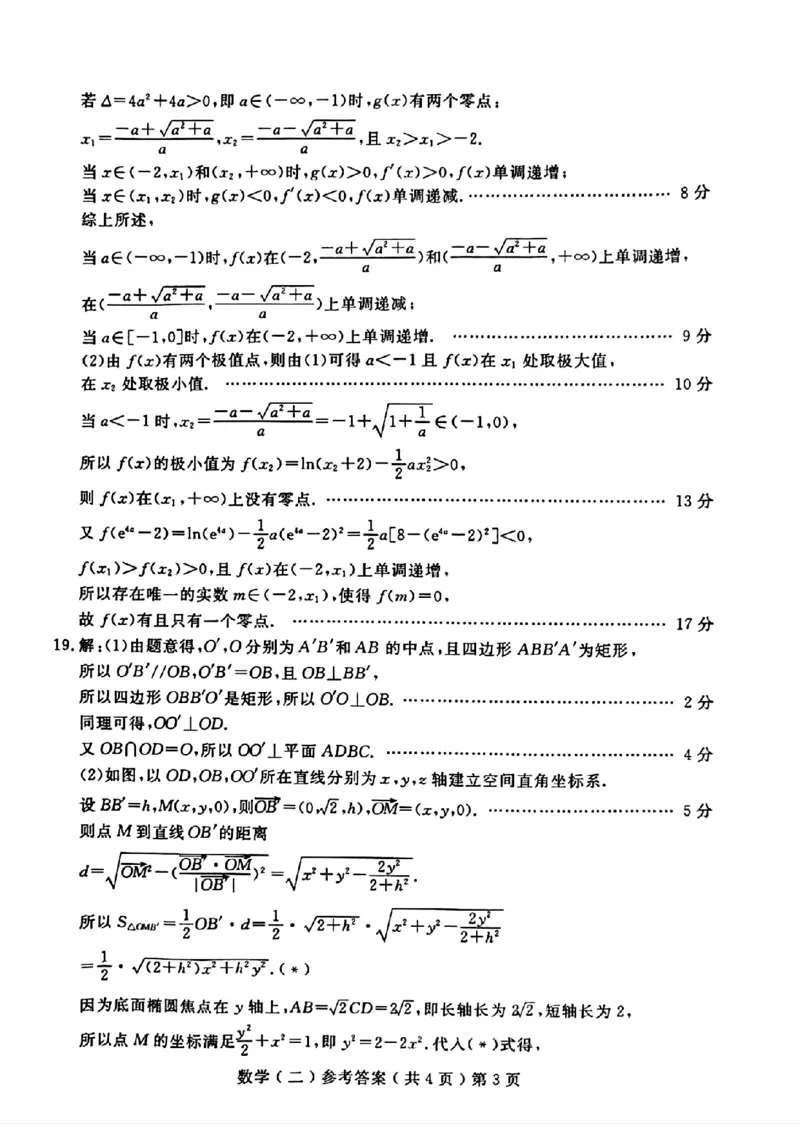 若Δ=4a²+4a>0,即a∈(-∞,-1)时,g(x)有两个零点:
x₁=(-a+√(a²+a))/a,x₂=(-a-√(a²+a))/a,且x₂>x₁>-2.
当x∈(-2,x₁)和(x₂,+∞)时,g(x)>0,f′(x)>0,f(x)单调递增;
当x∈(x₁,x₂)时,g(x)<0,f′(x)<0,f(x)单调递减.………………………………8分
综上所述,
当a∈(-∞,-1)时,f(x)在(-2,(-a+√(a²+a))/a)和((-a-√(a²+a))/a,+∞)上单调递增,
在((-a+√(a²+a))/a,(-a-√(a²+a))/a)上单调递减;
当a∈[-1,0]时,f(x)在(-2,+∞)上单调递增.………………………………9分
(2)由f(x)有两个极值点,则由(1)可得a<-1且f(x)在x₁处取极大值,
在x₂处取极小值.………………………………………………………………10分
当a<-1时,x₂=(-a-√(a²+a))/a=-1+√(1+1/a)∈(-1,0),
所以f(x)的极小值为f(x₂)=ln(x₂+2)-½ax₂²>0,
则f(x)在(x₁,+∞)上没有零点.………………………………………………13分
又f(e⁴ᵃ-2)=ln(e⁴ᵃ)-½a(e⁴ᵃ-2)²=½a[8-(e⁴ᵃ-2)²]<0,
f(x₁)>f(x₂)>0,且f(x)在(-2,x₁)上单调递增,
所以存在唯一的实数m∈(-2,x₁),使得f(m)=0,
故f(x)有且只有一个零点.……………………………………………………17分
19.解:(1)由题意得,O′,O分别为A′B′和AB的中点,且四边形ABB′A′为矩形,
所以O′B′//OB,O′B′=OB,且OB⊥BB′,
所以四边形OBB′O′是矩形,所以O′O⊥OB.……………………………………2分
同理可得,OO′⊥OD.
又OB∩OD=O,所以OO′⊥平面ADBC.………………………………………4分
(2)如图,以OD,OB,OO′所在直线分别为x,y,z轴建立空间直角坐标系.
设BB′=h,M(x,y,0),则OB′⃗=(0,√2,h),OM⃗=(x,y,0).…………………………5分
则点M到直线OB′的距离
d=√(OM⃗²-((OB′⃗·OM⃗)/|OB′⃗|)²)=√(x²+y²-2y²/(2+h²)).
所以S△OMB′=½OB′·d=½·√(2+h²)·√(x²+y²-2y²/(2+h²))
=½·√((2+h²)x²+h²y²).(*)
因为底面椭圆焦点在y轴上,AB=√2CD=2√2,即长轴长为2√2,短轴长为2,
所以点M的坐标满足y²/2+x²=1,即y²=2-2x².代入(*)式得,
数学(二)参考答案(共4页)第3页